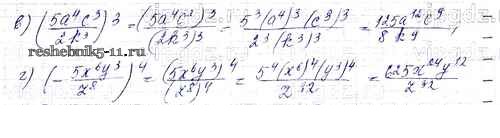 в) (5a⁴c³/2k³)³ = (5a⁴c³)³/(2k³)³ = 5³(a⁴)³(c³)³/2³(k³)³ = 125a¹²c⁹/8k⁹;
www.reshak5-11.ru
г) (-5x⁶y³/z⁸)⁴ = (5x⁶y³)⁴/(z⁸)⁴ = 5⁴(x⁶)⁴(y³)⁴/z³² = 625x²⁴y¹²/z³²